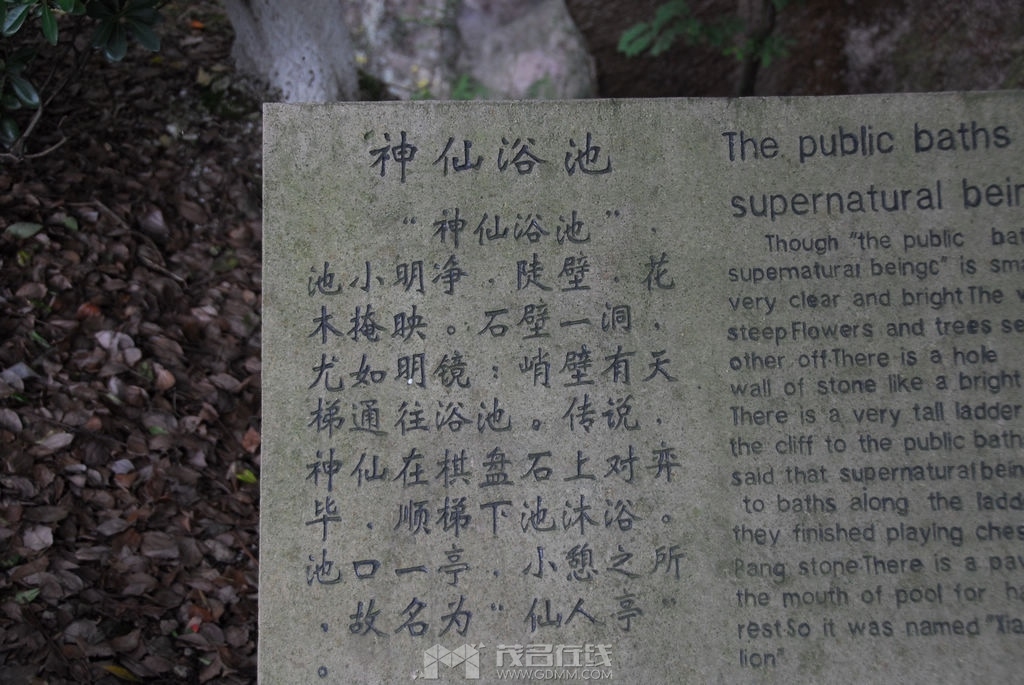 神仙浴池
“神仙浴池”，
池小明净，陡壁，花
木掩映。石壁一洞，
尤如明镜；峭壁有天
梯通往浴池。传说，
神仙在棋盘石上对弈
毕，顺梯下池沐浴。
池口一亭，小憩之所
，故名为“仙人亭”
。
The public baths
supernatural
Though "the public
supernatural beingc" is
very clear and bright The
steep Flowers and trees
other off.There is a hole
wall of stone like a bright
There is a very tall ladder
the cliff to the public baths
said that supernatural
to baths along the
they finished playing
Pang stone.There is a
the mouth of pool for
rest.So it was named
lion"
茂名在线
WWW.GDMM.COM